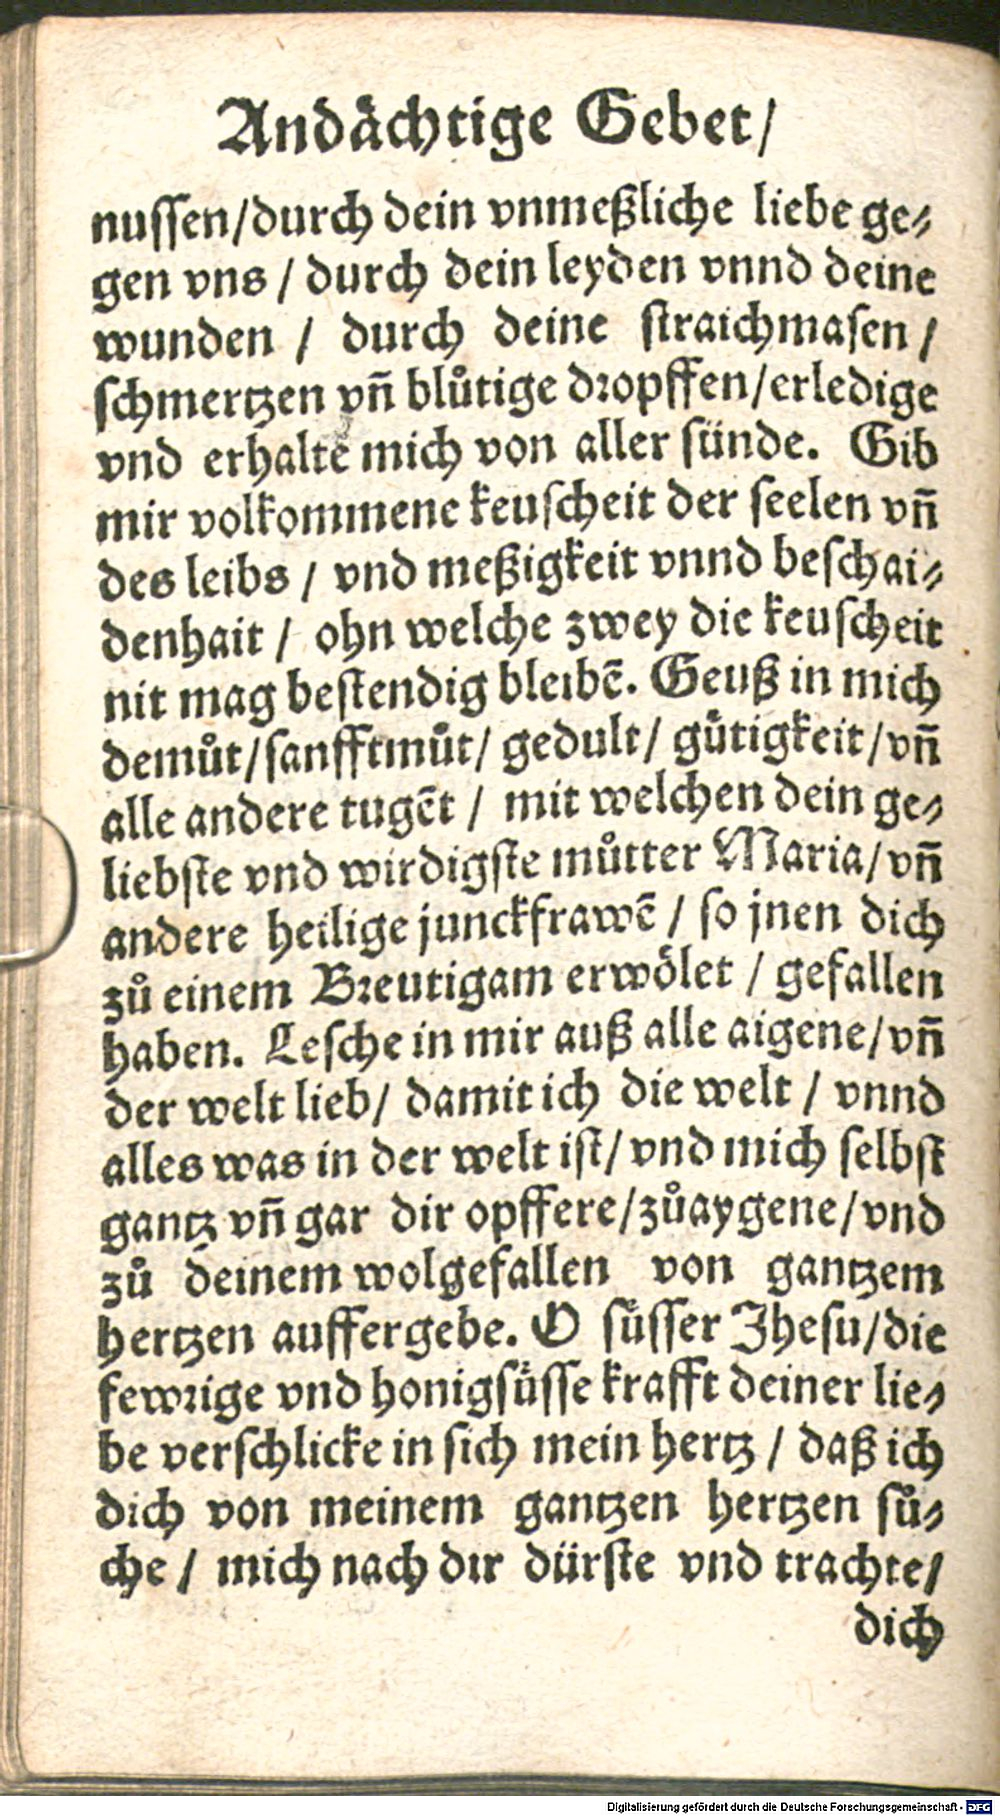 Andaͤchtige Gebet/
nussen/durch dein vnmeßliche liebe ge⸗
gen vns / durch dein leyden vnnd deine
wunden / durch deine straichmasen /
schmertzen vñ bluͦtige dropffen/erledige
vnd erhalte mich von aller sünde. Gib
mir volkommene keuscheit der seelen vñ
des leibs / vnd meßigkeit vnnd beschai⸗
denhait / ohn welche zwey die keuscheit
nit mag bestendig bleibẽ. Geuß in mich
demuͦt/sanfftmuͦt/ gedult/ guͤtigkeit/vñ
alle andere tugẽt / mit welchen dein ge⸗
liebste vnd wirdigste muͦtter Maria/vñ
andere heilige junckfrawẽ / so jnen dich
zuͦ einem Breutigam erwoͤlet / gefallen
haben. Lesche in mir auß alle aigene/vñ
der welt lieb/ damit ich die welt / vnnd
alles was in der welt ist/ vnd mich selbst
gantz vñ gar dir opffere/zuͦaygene/vnd
zuͦ deinem wolgefallen von gantzem
hertzen auffergebe. O suͤsser Jhesu/die
fewrige vnd honigsuͤsse krafft deiner lie⸗
be verschlicke in sich mein hertz / daß ich
dich von meinem gantzen hertzen suͦ⸗
che / mich nach dir dürste vnd trachte/
dich
Digitalisierung gefördert durch die Deutsche Forschungsgemeinschaft - DFG